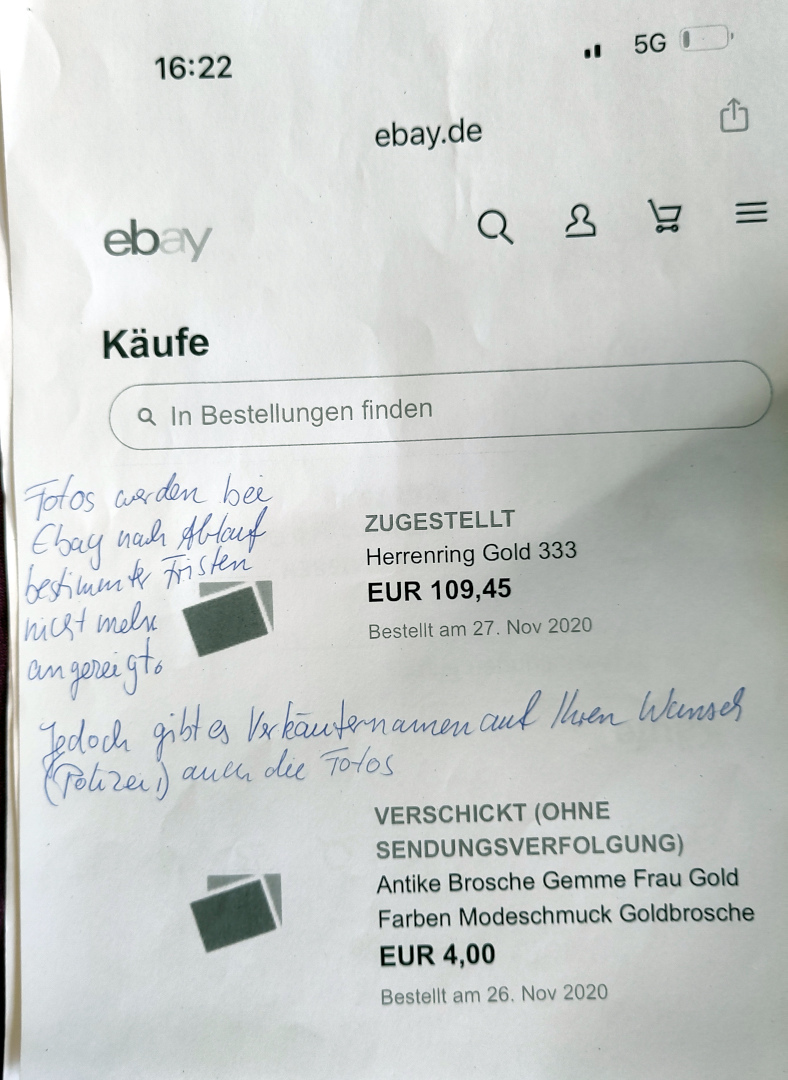 16:22
5G
ebay.de
ebay
Käufe
In Bestellungen finden
Fotos werden bei
Ebay nach Ablauf
bestimmter Fristen
nicht mehr
angezeigt.
ZUGESTELLT
Herrenring Gold 333
EUR 109,45
Bestellt am 27. Nov 2020
Jedoch gibt es Verkäufernamen auf Ihren Wunsch
(Polizei) auch die Fotos
VERSCHICKT (OHNE
SENDUNGSVERFOLGUNG)
Antike Brosche Gemme Frau Gold
Farben Modeschmuck Goldbrosche
EUR 4,00
Bestellt am 26. Nov 2020